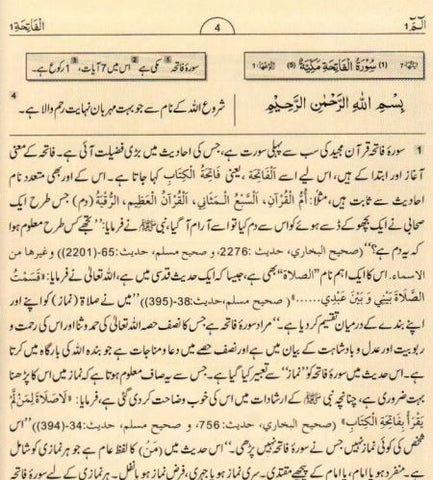 الٓمّٓ 1
4
اَلْفَاتِحَة 1
سورۂ فاتحہ مکی ہے اس میں 7 آیات، 1 رکوع ہے۔
(1) سُوْرَةُ الْفَاتِحَةِ مَكِّيَّةٌ (5)
شروع اللہ کے نام سے جو بہت مہربان نہایت رحم والا ہے۔ 4
بِسْمِ اللّٰهِ الرَّحْمٰنِ الرَّحِيْمِ
1 سورۂ فاتحہ قرآن مجید کی سب سے پہلی سورت ہے، جس کی احادیث میں بڑی فضیلت آئی ہے۔ فاتحہ کے معنی
آغاز اور ابتدا کے ہیں، اس لیے اسے اَلْفَاتِحَة، یعنی فَاتِحَةُ الْكِتَابِ کہا جاتا ہے۔ اس کے اور بھی متعدد نام
احادیث سے ثابت ہیں، مثلًا: اُمُّ الْقُرْآنِ، اَلسَّبْعُ الْمَثَانِي، اَلْقُرْآنُ الْعَظِيمُ، اَلرُّقْيَةُ (دم) جس طرح ایک
صحابی نے ایک بچھو کے ڈسے ہوئے کو اس سے دم کیا تو اسے آرام آ گیا، نبی ﷺ نے فرمایا: ”تجھے کس طرح معلوم ہوا
کہ یہ دم ہے؟“ (صحیح البخاري، حدیث: 2276، و صحیح مسلم، حدیث: 65-(2201)) وغیرھا من
الاسماء. اس کا ایک اہم نام ”الصلاة“ بھی ہے، جیسا کہ ایک حدیث قدسی میں ہے، اللہ تعالیٰ نے فرمایا: «قَسَمْتُ
الصَّلَاةَ بَيْنِي وَ بَيْنَ عَبْدِي......» (صحیح مسلم، حدیث: 38-(395)) ”میں نے صلاة (نماز) کو اپنے اور
اپنے بندے کے درمیان تقسیم کر دیا ہے۔“ مراد سورۂ فاتحہ ہے جس کا نصف حصہ اللہ تعالیٰ کی حمد و ثنا اور اس کی رحمت و
ربوبیت اور عدل و بادشاہت کے بیان میں ہے اور نصف حصے میں دعا و مناجات ہے جو بندہ اللہ کی بارگاہ میں کرتا
ہے۔ اس حدیث میں سورۂ فاتحہ کو ”نماز“ سے تعبیر کیا گیا ہے۔ جس سے یہ صاف معلوم ہوتا ہے کہ نماز میں اس کا پڑھنا
بہت ضروری ہے، چنانچہ نبی ﷺ کے ارشادات میں اس کی خوب وضاحت کر دی گئی ہے، فرمایا: «لَا صَلَاةَ لِمَنْ لَّمْ
يَقْرَأْ بِفَاتِحَةِ الْكِتَابِ» (صحیح البخاري، حدیث: 756، و صحیح مسلم، حدیث: 34-(394)) ”اس
شخص کی کوئی نماز نہیں جس نے سورۂ فاتحہ نہیں پڑھی۔“ اس حدیث میں (مَنْ) کا لفظ عام ہے جو ہر نمازی کو شامل
ہے۔ منفرد ہو یا امام، یا امام کے پیچھے مقتدی۔ سری نماز ہو یا جہری، فرض نماز ہو یا نفل۔ ہر نمازی کے لیے سورۂ فاتحہ